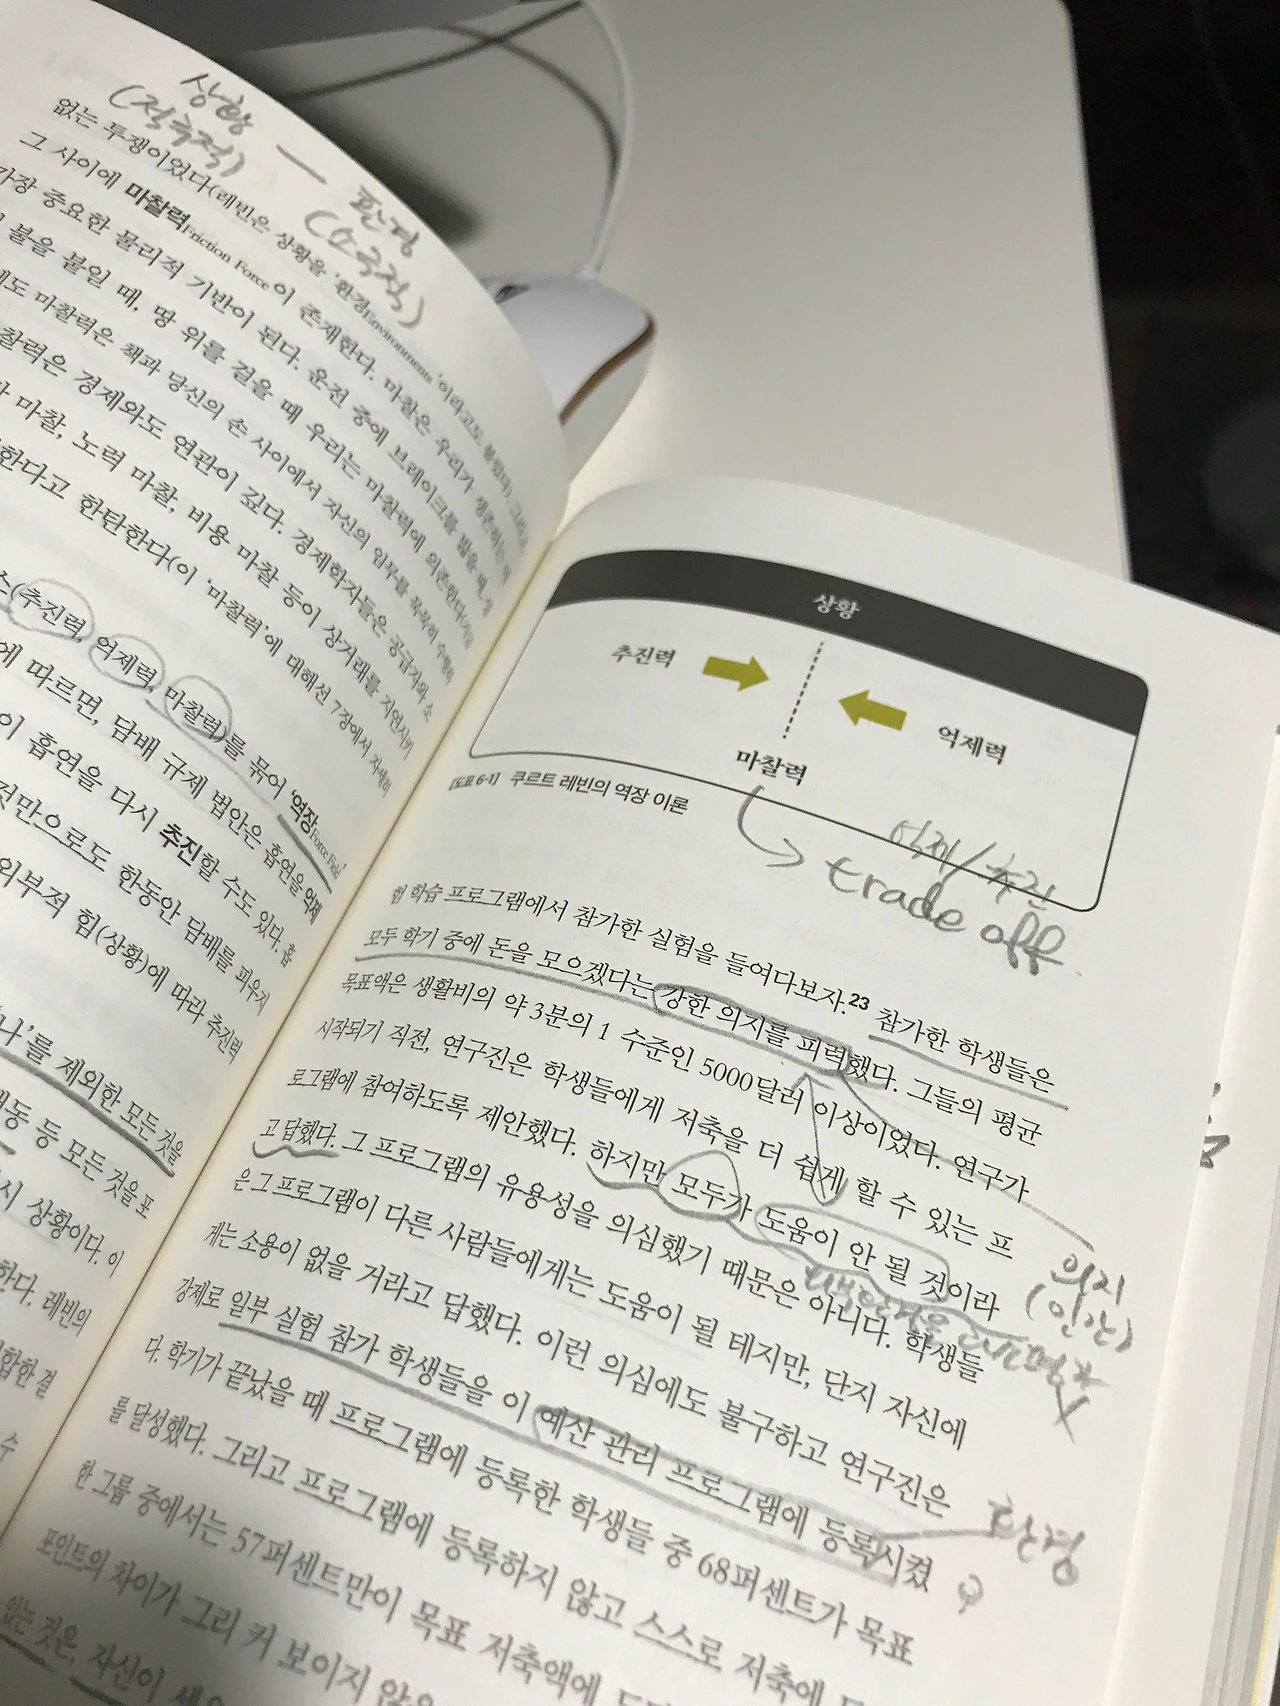 상황
(적극적)
—
환경
(소극적)
없는 투쟁이었다(레빈은 상황을 '환경Environments'이라고도 불렀다). 그리고
그 사이에 마찰력Friction Force이 존재한다. 마찰은 우리가 생존하는 데
가장 중요한 물리적 기반이 된다. 운전 중에 브레이크를 밟을 때, 성
불을 붙일 때, 땅 위를 걸을 때 우리는 마찰력에 의존한다(지금
에도 마찰력은 책과 당신의 손 사이에서 자신의 임무를 묵묵히 수행하
찰력은 경제와도 연관이 깊다. 경제학자들은 공급자와 소
마찰, 노력 마찰, 비용 마찰 등이 상거래를 지연시키
한다고 한탄한다(이 '마찰력'에 대해선 7장에서 자세히
스(추진력, 억제력, 마찰력)를 묶어 '역장Force Field'
에 따르면, 담배 규제 법안은 흡연을 억제
이 흡연을 다시 추진할 수도 있다. 흡
것만으로도 한동안 담배를 피우지
외부적 힘(상황)에 따라 추진력
'나'를 제외한 모든 것을
행동 등 모든 것을 포
시 상황이다. 이
한다. 레빈의
합한 결
수
상황
추진력
억제력
마찰력
[도표 6-1] 쿠르트 레빈의 역장 이론
억제/추진
trade off
험 학습 프로그램에서 참가한 실험을 들여다보자.23 참가한 학생들은
모두 학기 중에 돈을 모으겠다는 강한 의지를 피력했다. 그들의 평균
목표액은 생활비의 약 3분의 1 수준인 5000달러 이상이었다. 연구가
시작되기 직전, 연구진은 학생들에게 저축을 더 쉽게 할 수 있는 프
로그램에 참여하도록 제안했다. 하지만 모두가 도움이 안 될 것이라
고 답했다. 그 프로그램의 유용성을 의심했기 때문은 아니다. 학생들
은 그 프로그램이 다른 사람들에게는 도움이 될 테지만, 단지 자신에
게는 소용이 없을 거라고 답했다. 이런 의심에도 불구하고 연구진은
강제로 일부 실험 참가 학생들을 이 예산 관리 프로그램에 등록시켰
다. 학기가 끝났을 때 프로그램에 등록한 학생들 중 68퍼센트가 목표
를 달성했다. 그리고 프로그램에 등록하지 않고 스스로 저축에
한 그룹 중에서는 57퍼센트만이 목표 저축액에
포인트의 차이가 그리 커 보이지 않
있는 것은, 자신이
의지
(인간)
환경